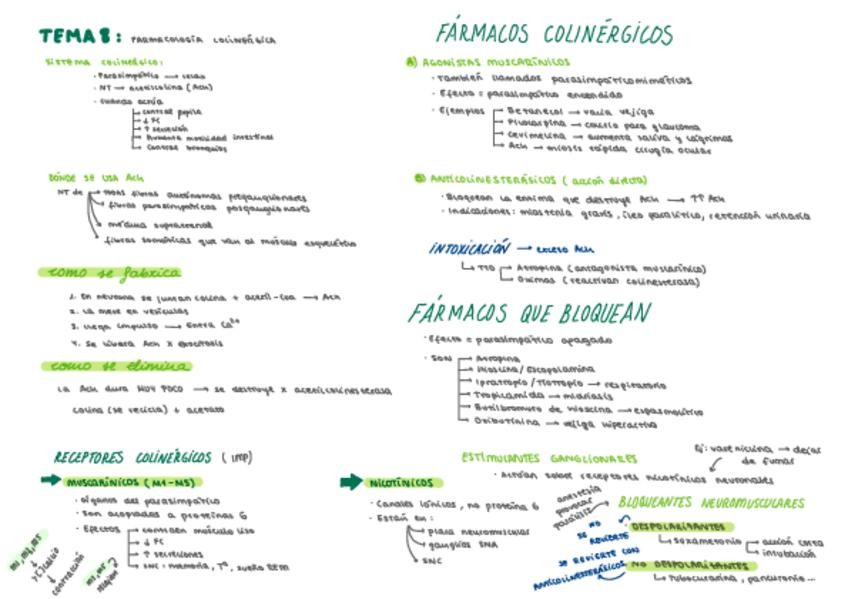 TEMA 8: FARMACOLOGÍA COLINÉRGICA
SISTEMA COLINÉRGICO:
· Parasimpático → relax
· NT → acetilcolina (Ach)
· Cuando actúa
→ contrae pupila
→ ↓ FC
→ ↑ secreción
→ Aumenta motilidad intestinal
→ Contrae bronquios
DÓNDE SE USA Ach
NT de → todas fibras autónomas preganglionares
→ fibras parasimpáticas posganglionares
→ médula suprarrenal
→ fibras somáticas que van al músculo esquelético
como se fabrica
1. En neurona se juntan colina + acetil-CoA → Ach
2. La mete en vesículas
3. Llega impulso → Entra Ca²⁺
4. Se libera Ach x exocitosis
como se elimina
La Ach dura MUY POCO → se destruye x acetilcolinesterasa
colina (se recicla) + acetato
RECEPTORES COLINÉRGICOS (IMP)
MUSCARÍNICOS (M1-M5)
· Órganos del parasimpático
· Son acoplados a proteínas G
· Efectos → contraen músculo liso
→ ↓ FC
→ ↑ secreciones
→ SNC: memoria, Tª, sueño REM
M1, M3, M5
↓
calcio
↓
contracción
NICOTÍNICOS
· Canales iónicos, no proteína G
· Están en:
→ placa neuromuscular
→ ganglios SNA
→ SNC
FÁRMACOS COLINÉRGICOS
A) AGONISTAS MUSCARÍNICOS
· También llamados parasimpáticomiméticos
· Efecto = parasimpático encendido
· Ejemplos → Betanecol → vacía vejiga
→ Pilocarpina → colirio para glaucoma
→ Cevimelina → aumenta saliva y lágrimas
→ Ach → miosis rápida cirugía ocular
B) ANTICOLINESTERÁSICOS (acción directa)
· Bloquean la enzima que destruye Ach → ↑↑ Ach
· Indicaciones: miastenia gravis, íleo paralítico, retención urinaria
INTOXICACIÓN → exceso Ach
↳ TTO → Atropina (antagonista muscarínico)
→ Oximas (reactivan colinesterasa)
FÁRMACOS QUE BLOQUEAN
· Efecto = parasimpático apagado
· SON → Atropina
→ Hioscina / Escopolamina
→ Ipratropio / Tiotropio → respiratorio
→ Tropicamida → midriasis
→ Butilbromuro de hioscina → espasmolítico
→ Oxibutinina → vejiga hiperactiva
ESTIMULANTES GANGLIONARES
Ej: vareniclina → dejar de fumar
· Actúan sobre receptores nicotínicos neuronales
BLOQUEANTES NEUROMUSCULARES
anestesia
provocar
parálisis
DESPOLARITANTES
NO SE REVIERTE
↳ suxametonio → acción corta
→ intubación
NO DESPOLARITANTES
SE REVIERTE CON
ANTICOLINESTERÁSICOS
↳ tubocurarina, pancuronio...